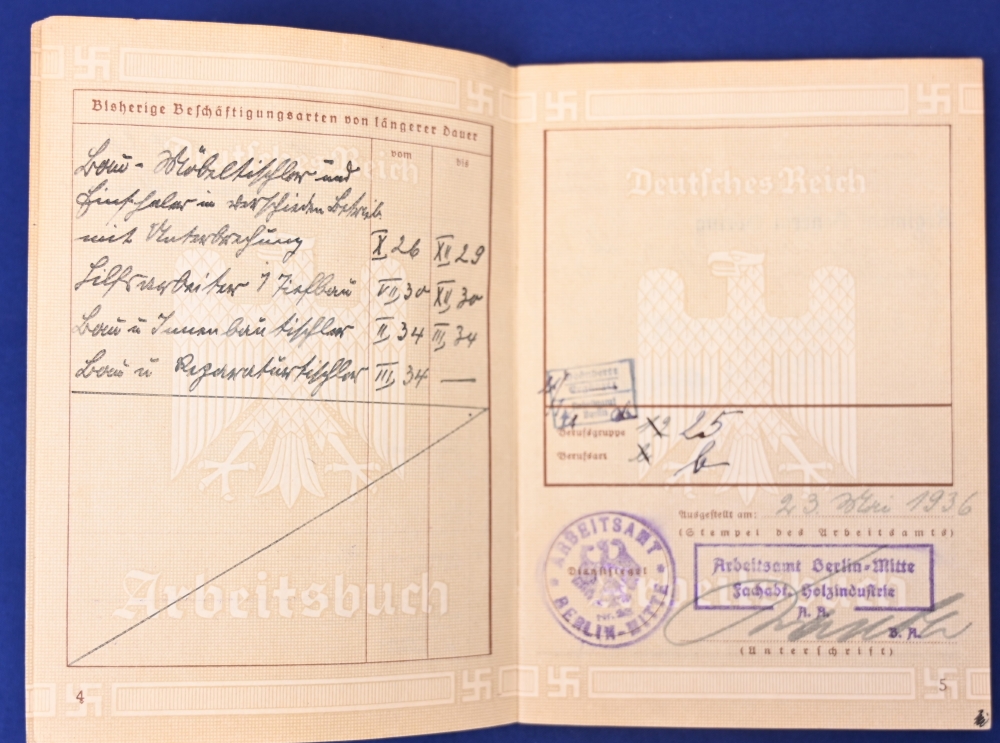 Bisherige Beschäftigungsarten von längerer Dauer
vom bis
Bau- Möbeltischler und
Einschaler in verschieden Betrieb.
mit Unterbrechung X 26 XII 29
Hilfsarbeiter i Tiefbau VII 30 XII 30
Bau u Innenbautischler II 34 III 34
Bau u Reparaturtischler III 34 —
Deutsches Reich
Arbeitsbuch
4
Deutsches Reich
Berufsgruppe 25
Berufsart b
Ausgestellt am: 23 Mai 1936
(Stempel des Arbeitsamts)
ARBEITSAMT
Dienstsiegel
BERLIN-MITTE
Arbeitsamt Berlin-Mitte
Fachabt. Holzindustrie
A. A.
B. A.
(Unterschrift)
Arbeitsbuch
5